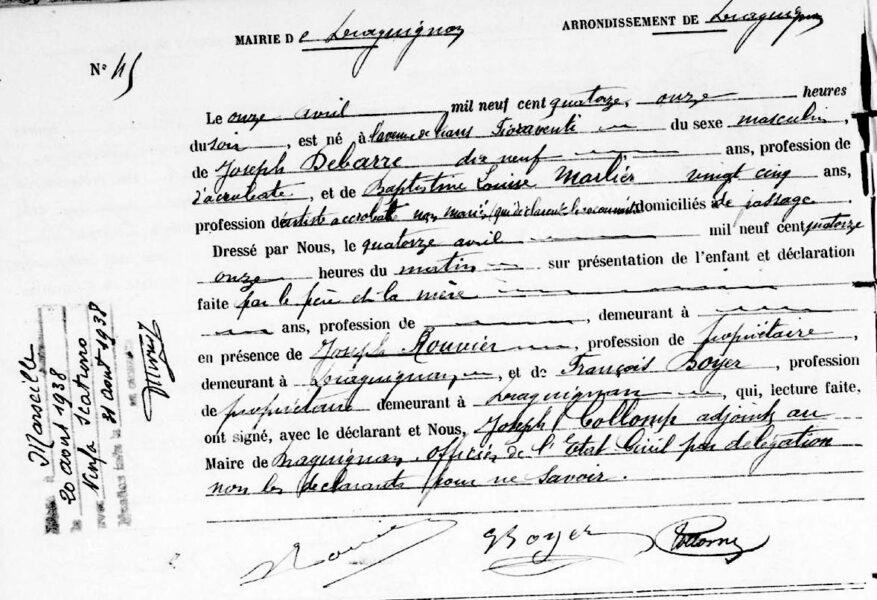 MAIRIE DE Draguignan
ARRONDISSEMENT DE Draguignan
N° 45
Le onze avril mil neuf cent quatorze, onze heures
du soir, est né à l'avenue de Fioraventi du sexe masculin,
de Joseph Debarre dix neuf ans, profession de
d'acrobate, et de Baptistine Louise Marlier vingt cinq ans,
profession d'artiste acrobate non mariés (qui déclarent le reconnaître) domiciliés à de passage.
Dressé par Nous, le quatorze avril mil neuf cent quatorze
onze heures du matin sur présentation de l'enfant et déclaration
faite par le père et la mère
ans, profession de , demeurant à
en présence de Joseph Rouvier, profession de propriétaire,
demeurant à Draguignan, et de François Boyer, profession
de propriétaire demeurant à Draguignan, qui, lecture faite,
ont signé, avec le déclarant et Nous, Joseph Collomp adjoint au
Maire de Draguignan Officier de l'Etat Civil par délégation
non les déclarants pour ne savoir.
Rouvier Boyer Collomp
Marseille
20 août 1938
le
Ninfa
31 août 1938